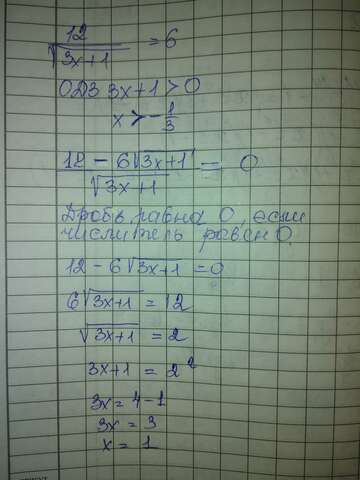 12/√(3x+1) = 6
ОДЗ 3x+1>0
x > -1/3
(12 - 6√(3x+1))/√(3x+1) = 0
Дробь равна 0, если
числитель равен 0.
12 - 6√(3x+1) = 0
6√(3x+1) = 12
√(3x+1) = 2
3x+1 = 2²
3x = 4-1
3x = 3
x = 1